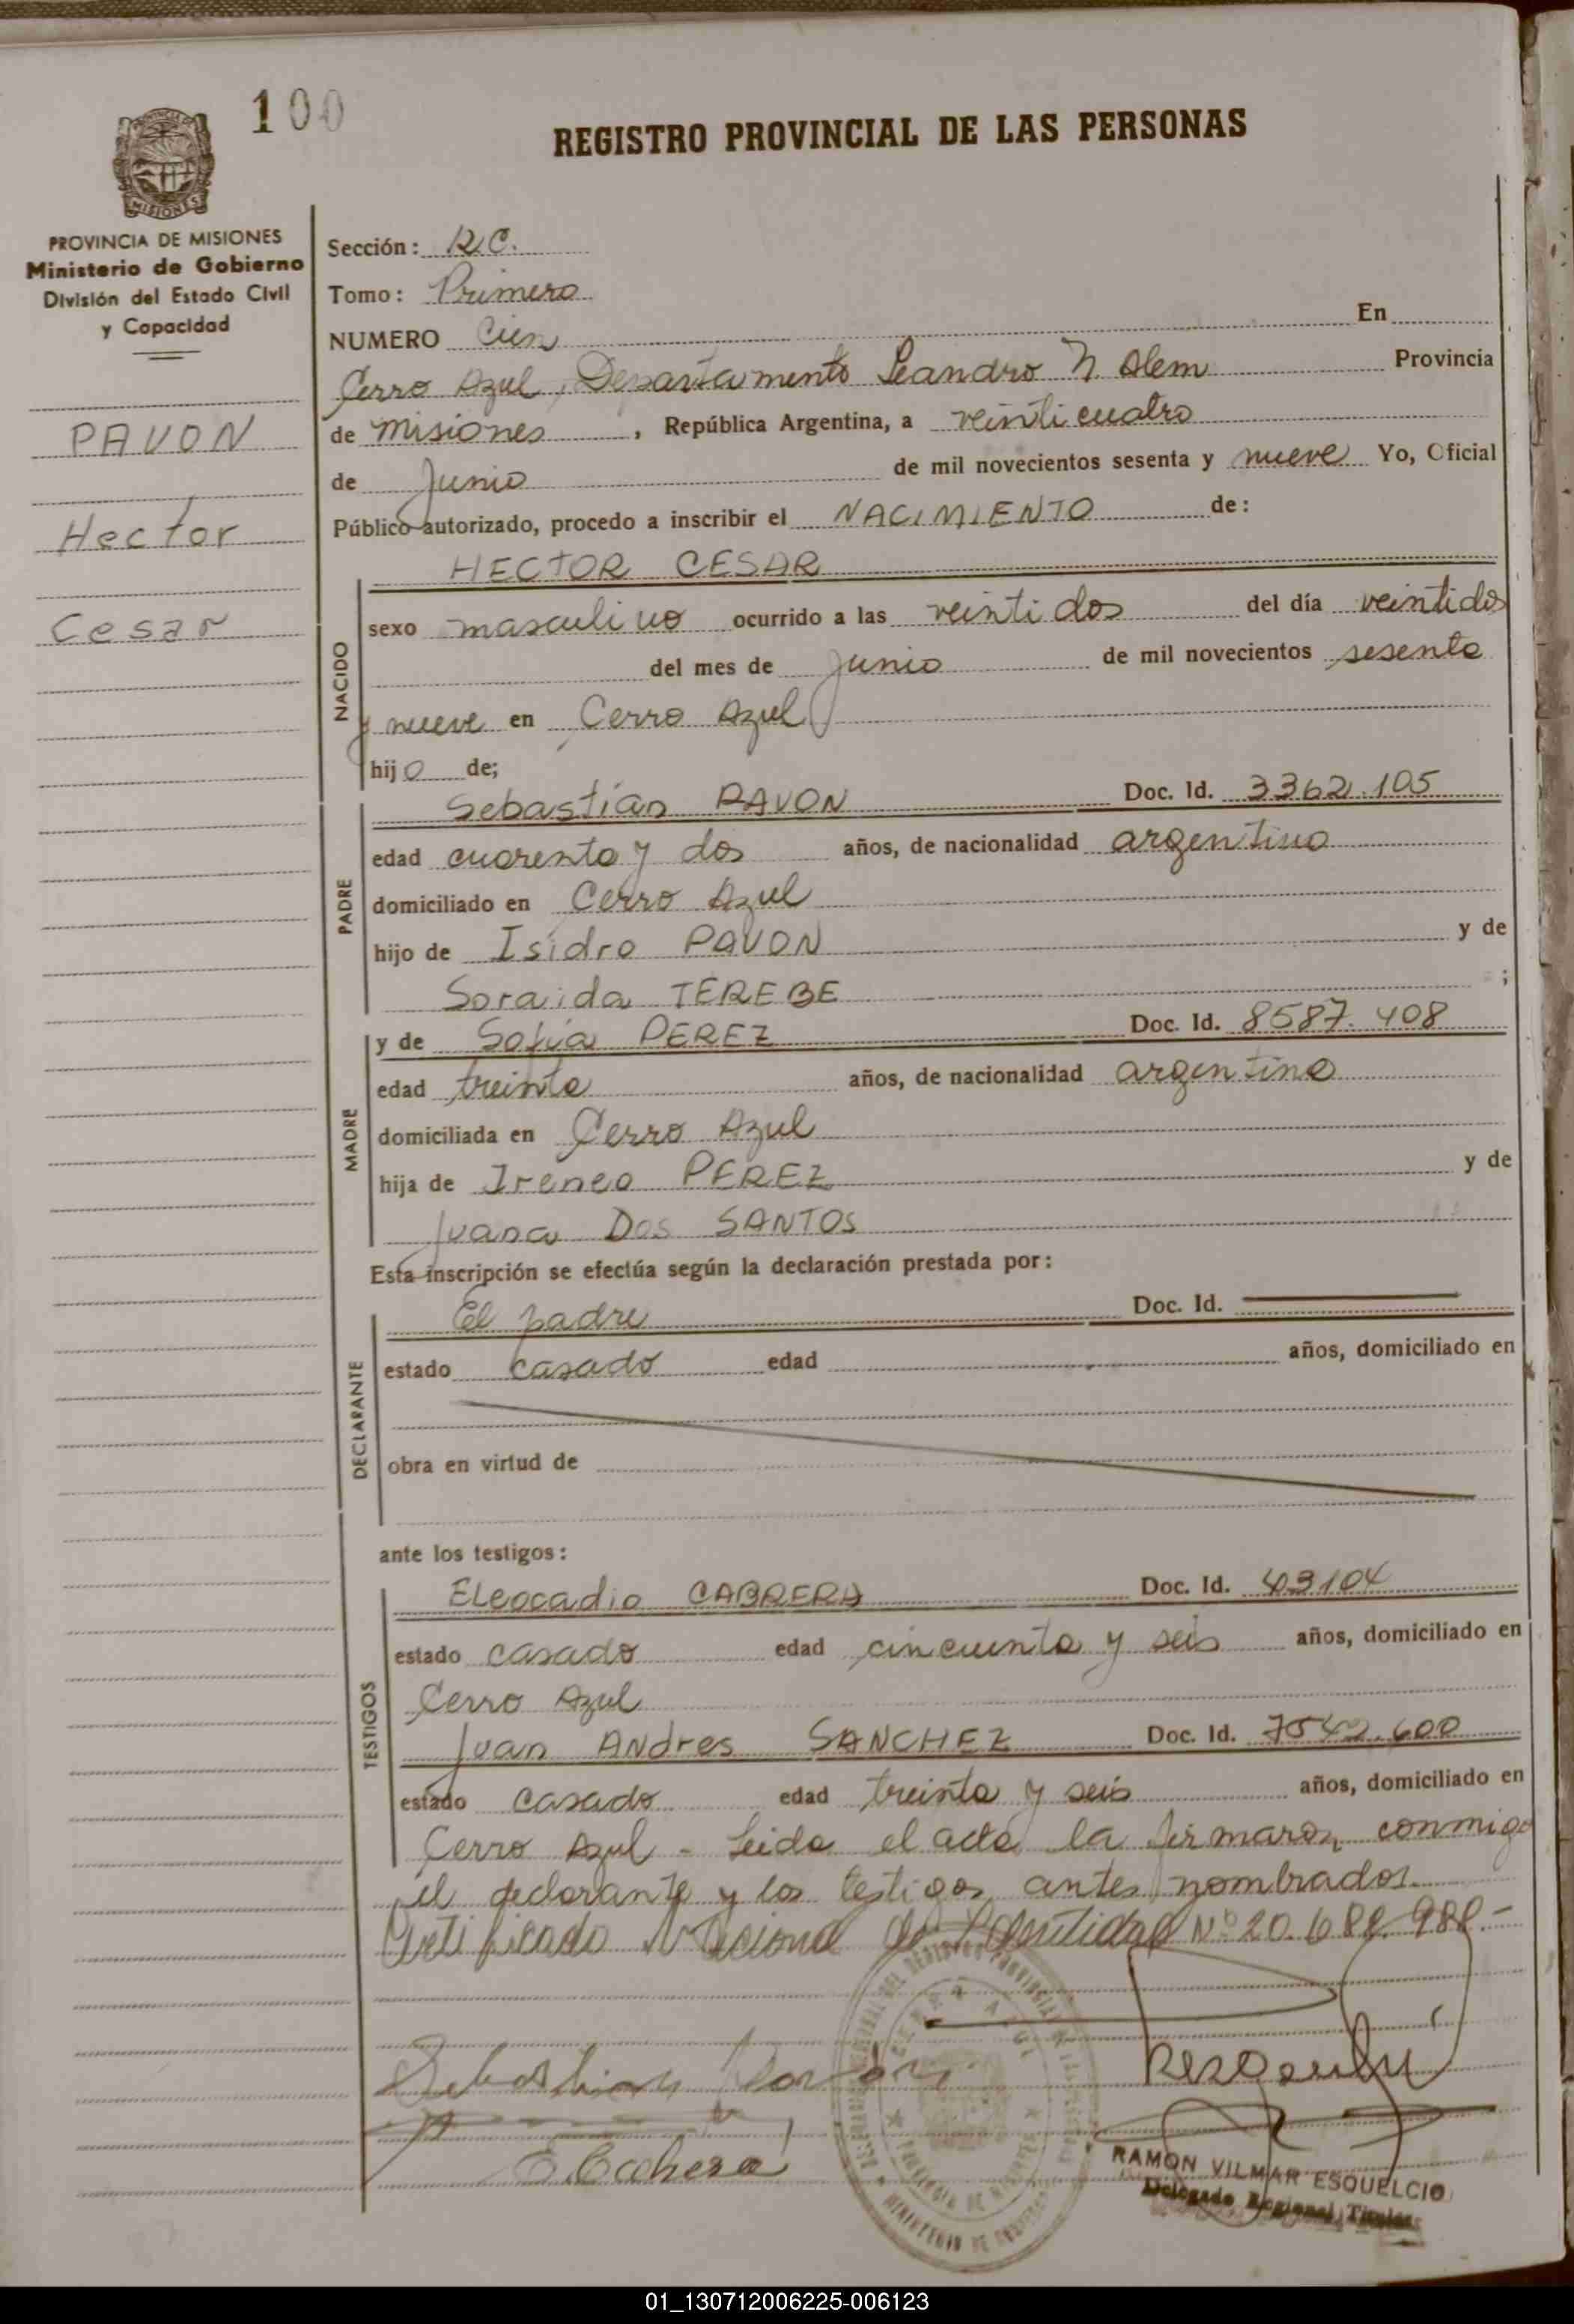 100
REGISTRO PROVINCIAL DE LAS PERSONAS
PROVINCIA DE MISIONES
Ministerio de Gobierno
División del Estado Civil
y Capacidad
PAVON
Hector
Cesar
Sección: R.C.
Tomo: Primero
NUMERO Cien En
Cerro Azul, Departamento Leandro N. Alem Provincia
de Misiones, República Argentina, a veinticuatro
de Junio de mil novecientos sesenta y nueve Yo, Oficial
Público autorizado, procedo a inscribir el NACIMIENTO de:
HECTOR CESAR
NACIDO
sexo masculino ocurrido a las veintidos del día veintidos
del mes de Junio de mil novecientos sesenta
y nueve en Cerro Azul
hijo de;
PADRE
Sebastian PAVON Doc. Id. 3362.105
edad cuarenta y dos años, de nacionalidad argentino
domiciliado en Cerro Azul
hijo de Isidro PAVON y de
Soraida TEREBE ;
MADRE
y de Sofia PEREZ Doc. Id. 8587.408
edad treinta años, de nacionalidad argentina
domiciliada en Cerro Azul
hija de Ireneo PEREZ y de
Juana DOS SANTOS
Esta inscripción se efectúa según la declaración prestada por:
DECLARANTE
El padre Doc. Id.
estado casado edad años, domiciliado en
obra en virtud de
ante los testigos:
TESTIGOS
ELeocadio CABRERA Doc. Id. 43104
estado casado edad cincuenta y seis años, domiciliado en
Cerro Azul
Juan ANdres SANCHEZ Doc. Id. 7542.600
estado casado edad treinta y seis años, domiciliado en
Cerro Azul - Leida el acta la firmaron conmigo
el declarante y los testigos antes nombrados.
Certificado Nacional de Identidad Nº 20.688.988.-
Sebastian Pavon
E. Cabrera
CERRO AZUL
PROVINCIA DE MISIONES
RAMON VILMAR ESQUELCIO
Delegado Regional Titular
01_130712006225-006123